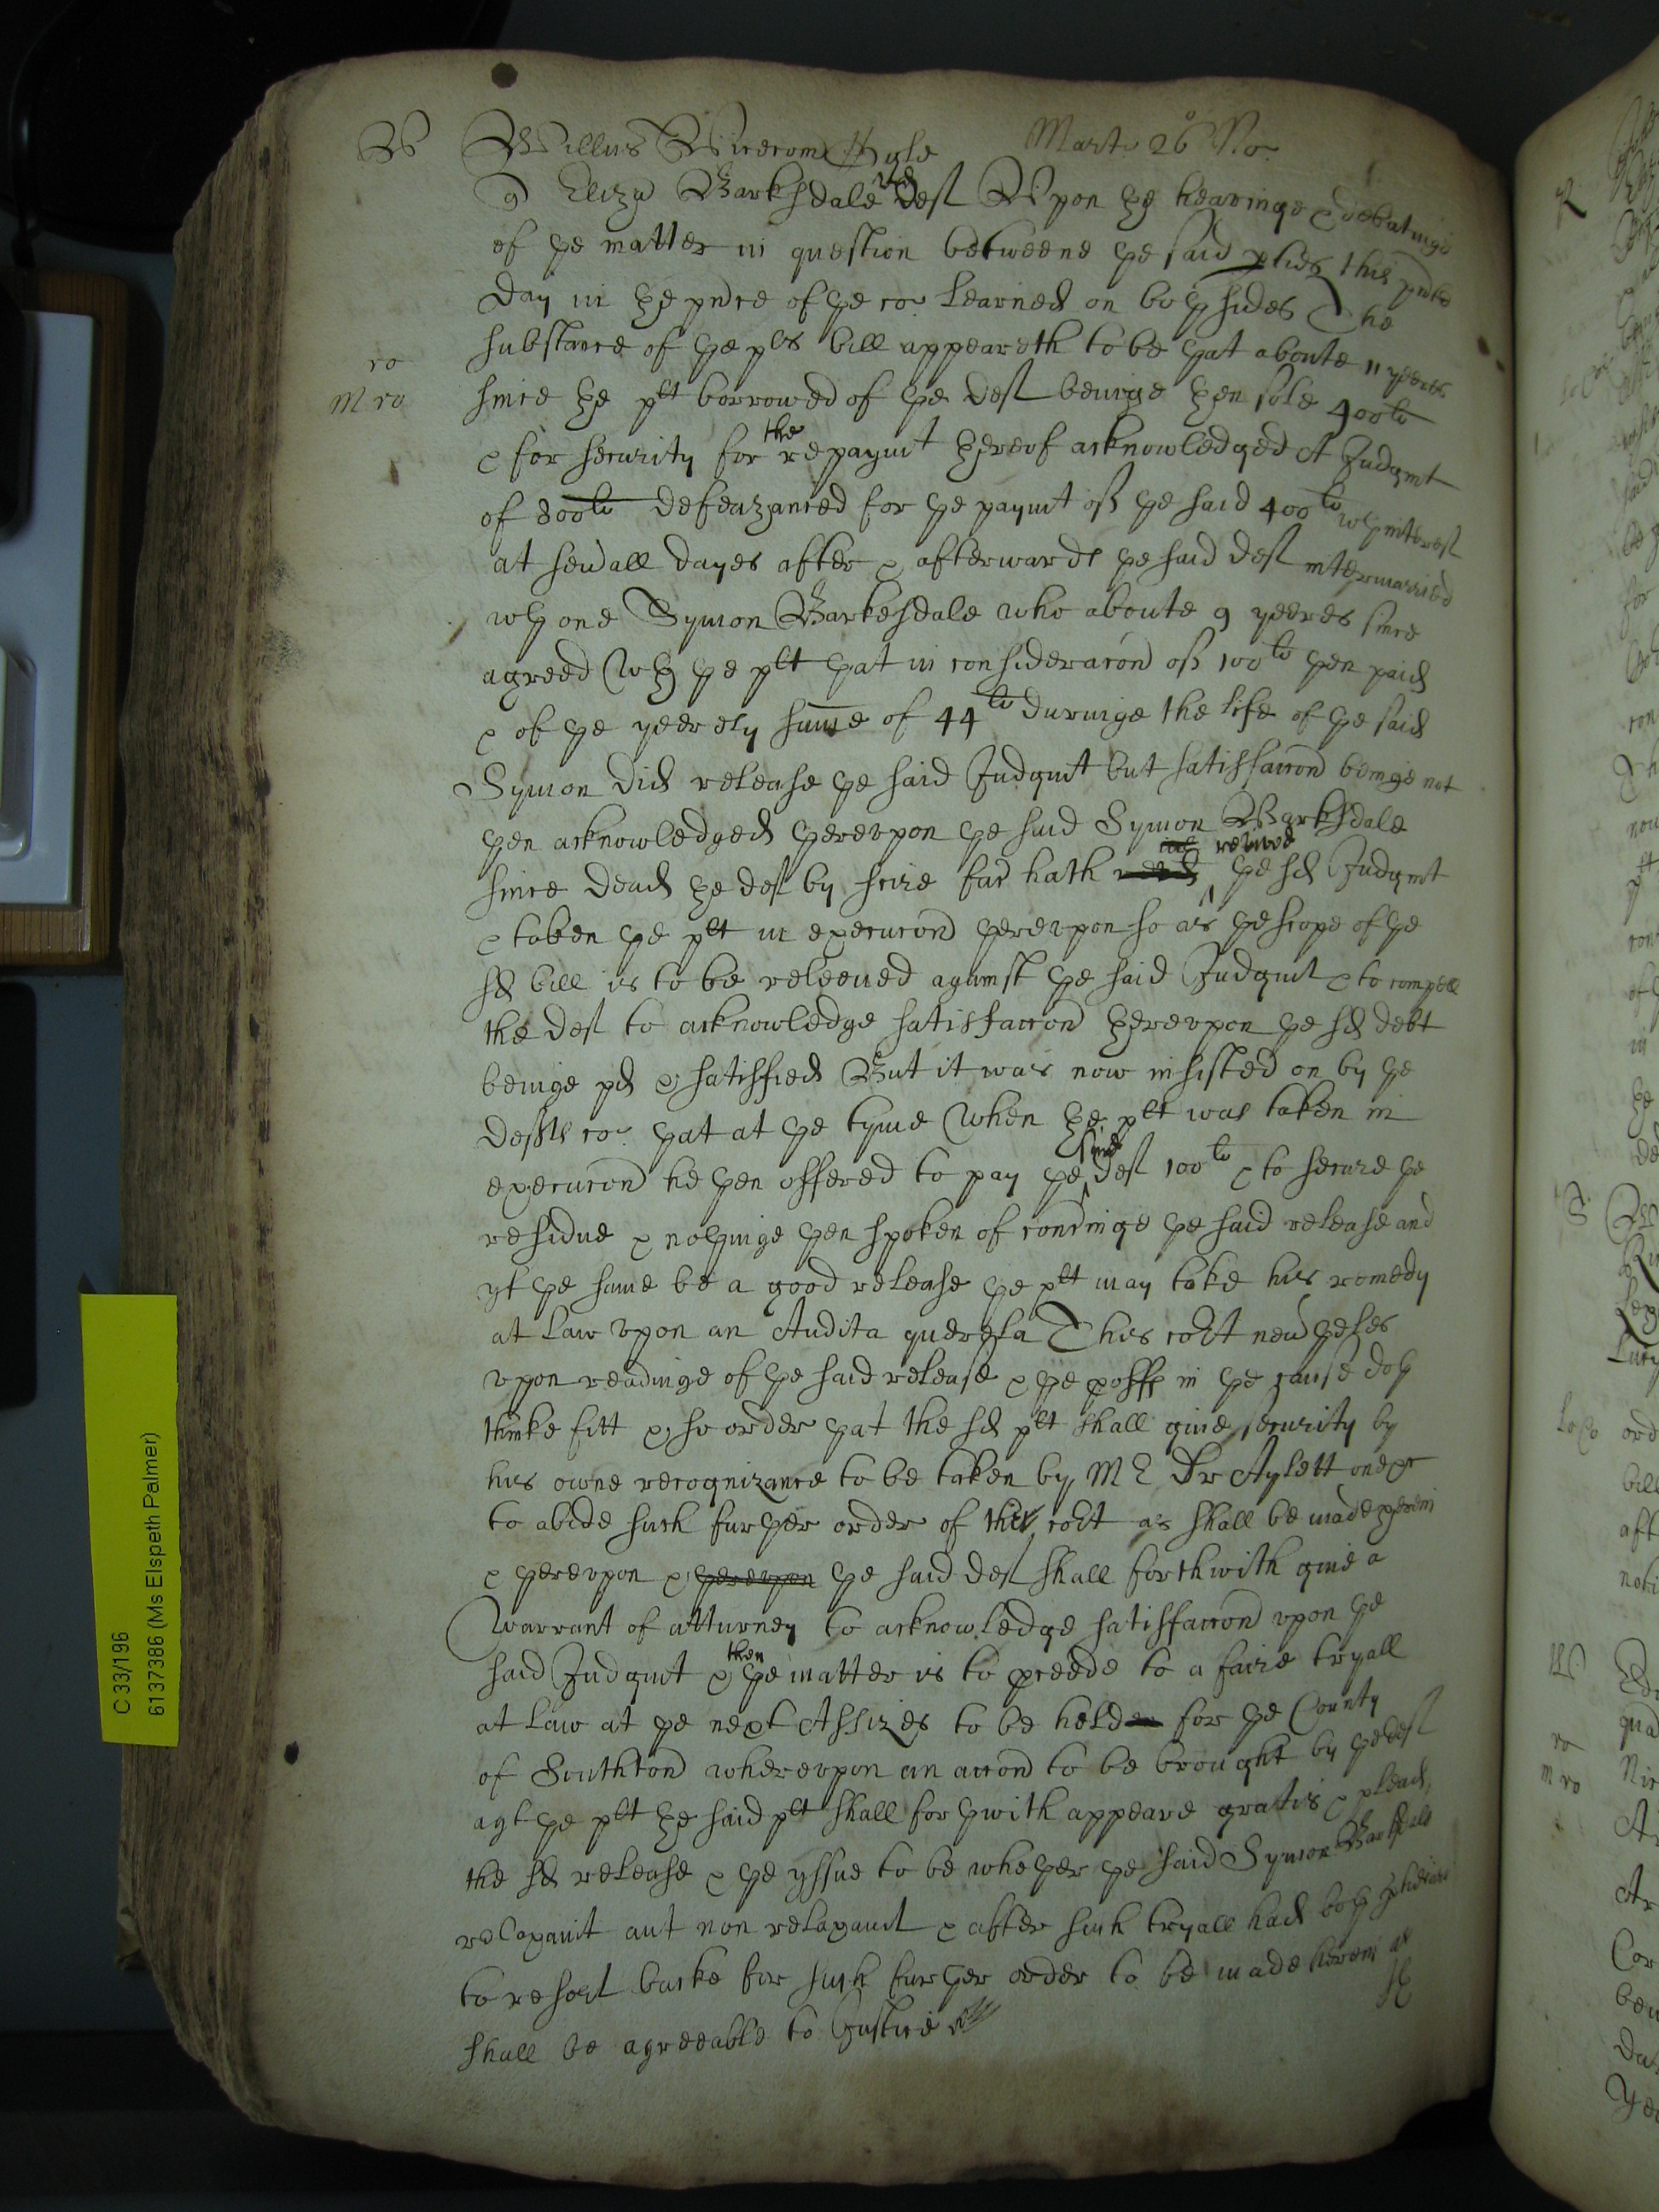 W Willus Vicecom Ayle Marti 26º No:
q Eliza Barksdale vid Deft Vpon ye hearinge & debatinge
of ye matter in question betweene ye said pties this pnte
Day in ye pnce of ye co: Learned on both sides The
substance of ye plts bill appeareth to be yat aboute 11 yeeres
ro
M ro
since ye plt borrowed of ye Deft beinge then sole 400li
& for security for the repaymt thereof acknowledged A Judgmt
of 800li defeazanced for ye paymt of ye said 400li wth interest
at seuall dayes after & afterwards ye said Deft intermarried
wth one Symon Barkesdale who aboute 9 yeeres since
agreed wth ye plt yat in consideracon of 100li then paid
& of ye yeerely sume of 44li duringe the life of ye said
Symon did release ye said Judgmt but satisfaccon beinge not
then acknowledged therevpon ye said Symon Barksdale
since dead ye Deft by scire fac hath revived ye sd Judgmt
& taken ye plt in execucon therevpon so as ye scope of ye
sd bill is to be releeued against ye said Judgmt & to compell
the Deft to acknowledge satisfaccon therevpon ye sd debt
beinge pd & satisfied But it was now insisted on by ye
Defts co: yat at ye tyme when ye plt was taken in
execucon he then offered to pay ye said Deft 100li & to secure ye
residue & nothinge then spoken of concerninge ye said release and
yf ye same be a good release ye plt may take his remedy
at Law vpon an Audita querela This cort neuertheles
vpon readinge of ye said release & ye proffes in ye cause doth
thinke fitt & so order yat the sd plt shall giue security by
his owne recognizance to be taken by Mr Dr Aylett one &c
to abide such further order of this cort as shall be made therein
& therevpon & therevpon ye said Deft shall forthwith giue a
Warrant of atturney to acknowledge satisfaccon vpon ye
said Judgmt & then ye matter is to pceede to a faire tryall
at Law at ye next Assizes to be helden for ye County
of Southton wherevpon an accon to be brought by ye Deft
agt ye plt ye said plt shall forthwith appeare gratis & plead
the sd release & ye yssue to be whether ye said Symon Barksdale
relaxauit aut non relaxauit & after such tryall had both pties are
to resort backe for such further order to be made herein as
shall be agreeable to Justice
C 33/196
6137386 (Ms Elspeth Palmer)